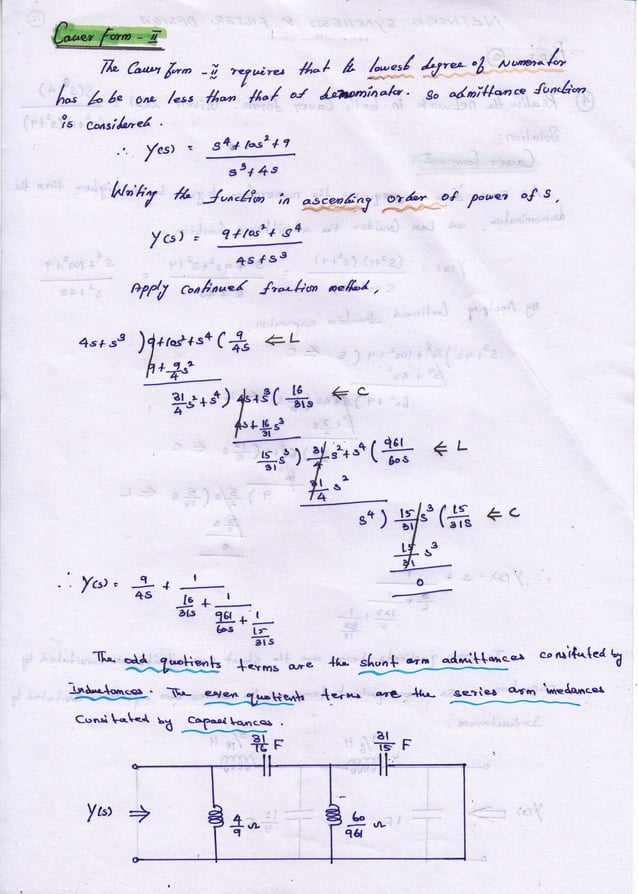 Cauer Form - II
The Cauer form - II requires that the lowest degree of Numerator
has to be one less than that of denominator. so admittance function
is considered.
∴ Y(s) = s⁴+10s²+9 / s³+4s
Writing the function in ascending order of power of s,
Y(s) = 9+10s²+s⁴ / 4s+s³
Apply continued fraction method,
4s+s³ ) 9+10s²+s⁴ ( 9/4s ⇐ L
9+ 9/4 s²
31/4 s²+s⁴ ) 4s+s³ ( 16/31s ⇐ C
4s+ 16/31 s³
15/31 s³ ) 31/4 s²+s⁴ ( 961/60s ⇐ L
31/4 s²
s⁴ ) 15/31 s³ ( 15/31s ⇐ C
15/31 s³
0
∴ Y(s) = 9/4s + 1/ 16/31s + 1/ 961/60s + 1/ 15/31s
The odd quotients terms are the shunt arm admittances consituted by
Inductances. The even quotients terms are the series arm imedances
Consitated by capacitances.
31/16 F 31/15 F
Y(s) ⇒ 4/9 Ω 60/961 Ω